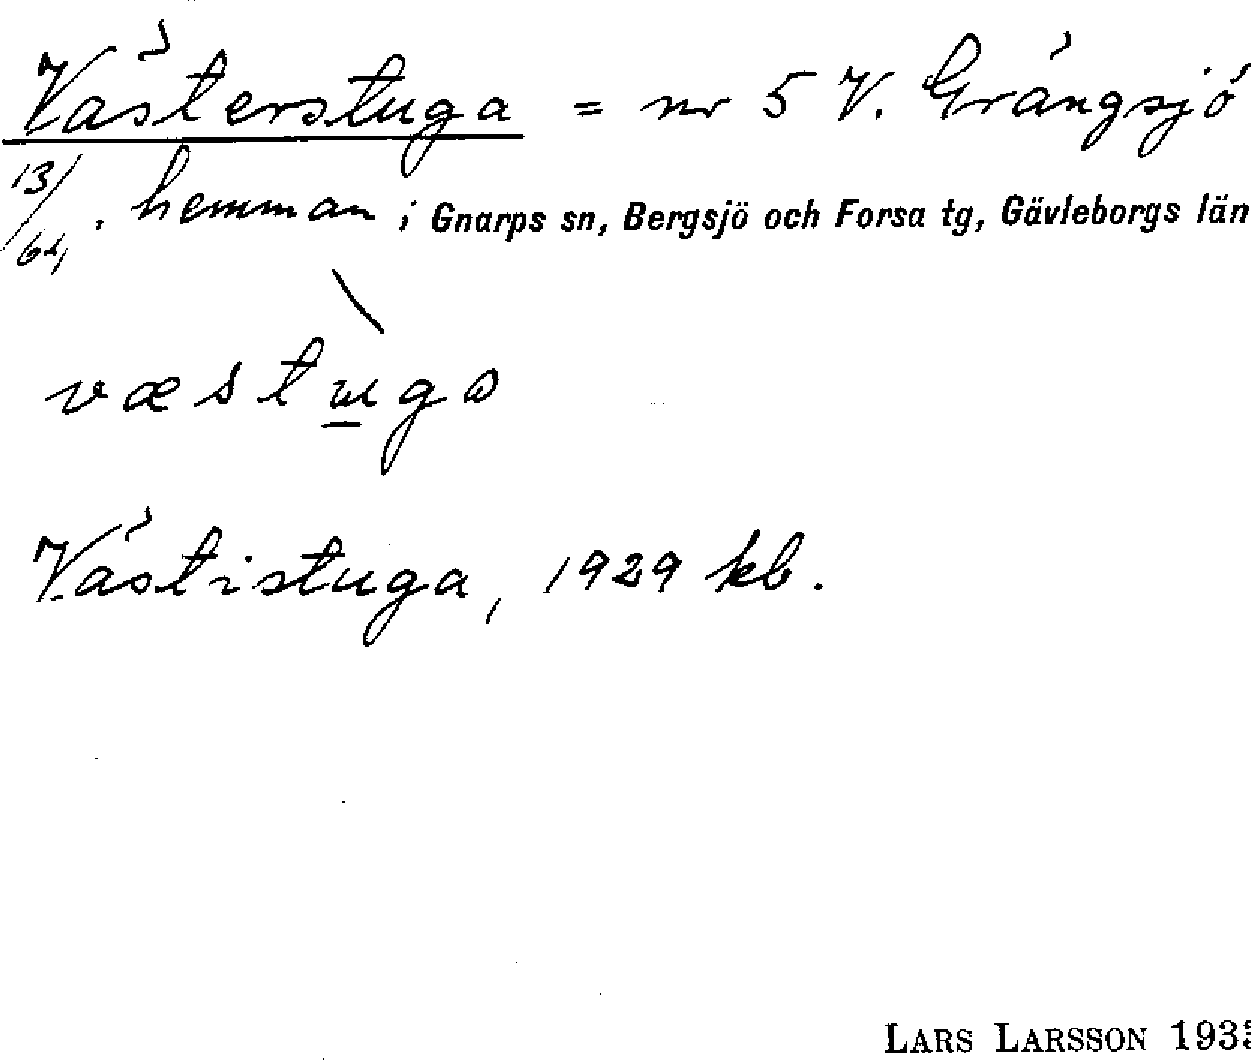 Västerstuga = nr 5 V. Grängsjö
13/64. hemman i Gnarps sn, Bergsjö och Forsa tg, Gävleborgs län
væstuga
Västistuga, 1929 kb.
LARS LARSSON 193